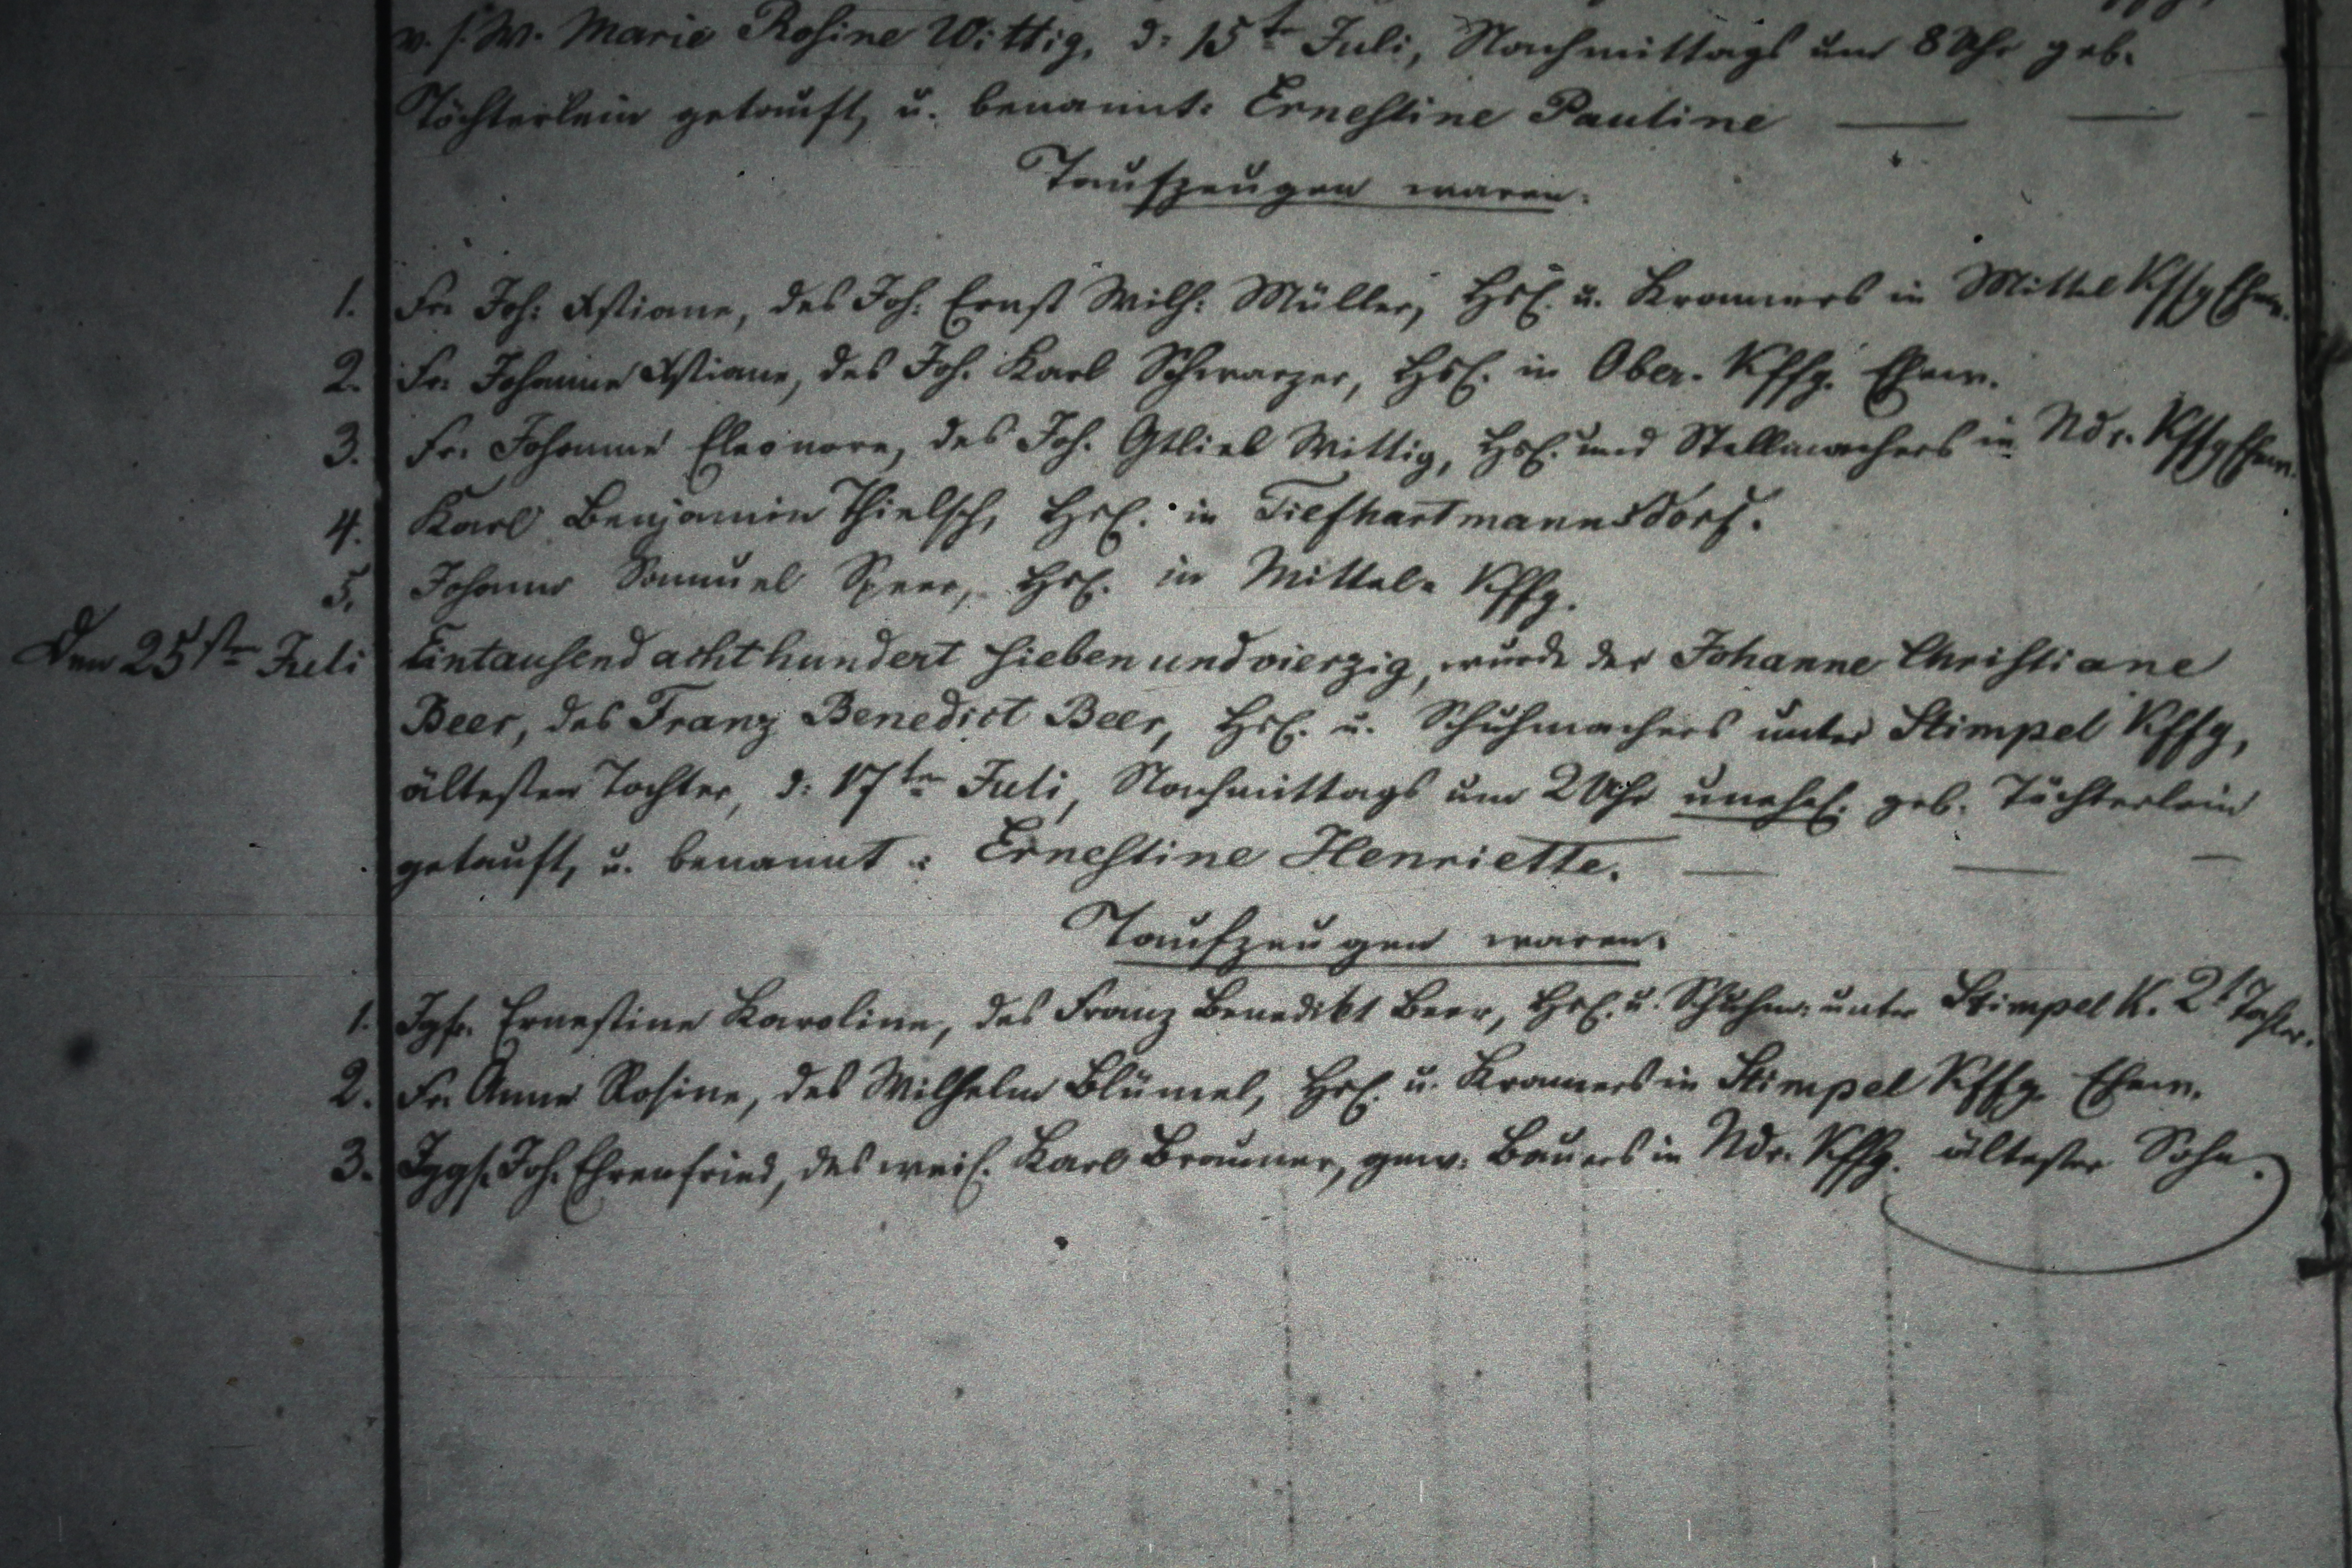 v. s. W. Marie Rosine Wittig, d: 15t Juli, Nachmittags um 8 Uhr geb.
Töchterlein getauft, u. benannt: Ernestine Pauline — — -
Taufzeugen waren.
1. Fr. Joh: Xstiane, des Joh: Ernst Wilh: Müller, Hsl. u. Kramers in Mittel Kffg Ehew.
2. Fr. Johanne Xstiane, des Joh. Karl Schwarzer, Hsl. in Ober-Kffg. Ehew.
3. Fr. Johanne Eleonore, des Joh. Gtlieb Wittig, Hsl. und Stellmachers in Ndr. Kffg Ehew.
4. Karl Benjamin Thielsch, Hsl. in Tiefhartmannsdorf.
5. Johann Samuel Speer, Hsl. in Mittel-Kffg.
Den 25sten Juli Eintausend achthundert sieben und vierzig, wurde der Johanne Christiane
Beer, des Franz Benedict Beer, Hsl. u. Schuhmachers unter Stimpel Kffg,
ältesten Tochter, d: 17ten Juli, Nachmittags um 2 Uhr unehel. geb. Töchterlein
getauft, u. benannt: Ernestine Henriette. — — -
Taufzeugen waren.
1. Jgfr. Ernestine Karoline, des Franz Benedikt Beer, Hsl. u. Schuhm: unter Stimpel K. 2t Tochter.
2. Fr. Anne Rosine, des Wilhelm Blümel, Hsl. u. Kramers in Stimpel Kffg. Ehew.
3. Jggs. Joh. Ehrenfried, des weil. Karl Brauner, gew. Bauers in Ndr. Kffg. ältester Sohn.